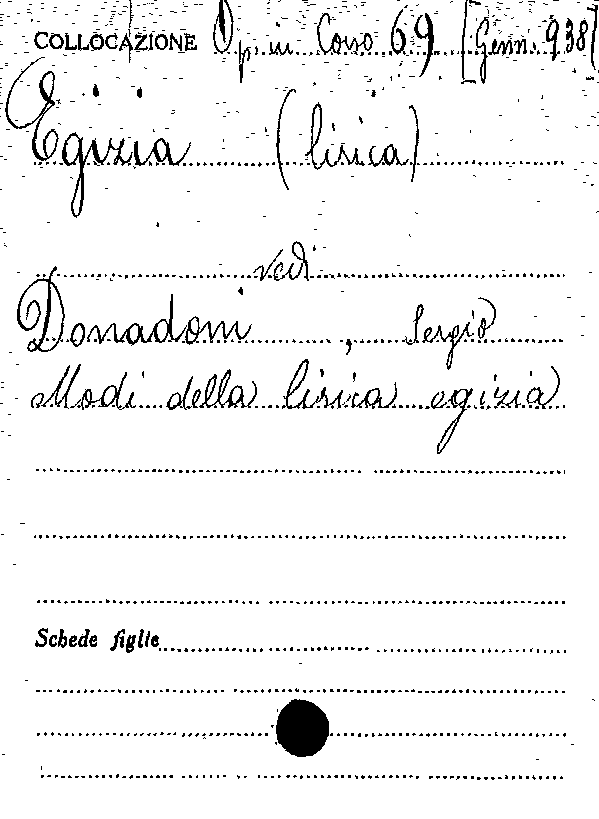 COLLOCAZIONE Op. in Corso 69 [Genn. 938]
Egizia (lirica)
vedi
Donadoni, Sergio
Modi della lirica egizia
Schede figlie